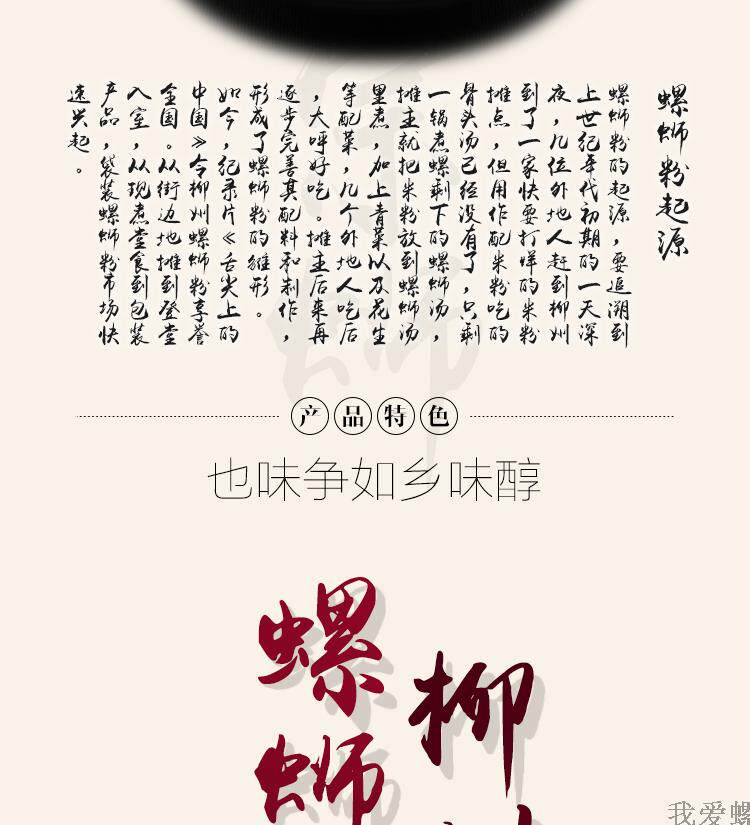 螺蛳粉起源
螺蛳粉的起源，要追溯到
上世纪年代初期的一天深
夜，几位外地人赶到柳州
到了一家快要打烊的米粉
摊点，但用作配米粉吃的
骨头汤已经没有了，只剩
一锅煮螺剩下的螺蛳汤，
摊主就把米粉放到螺蛳汤
里煮，加上青菜以及花生
等配菜，几个外地人吃后
，大呼好吃。摊主后来再
逐步完善其配料和制作，
形成了螺蛳粉的雏形。
如今，纪录片《舌尖上的
中国》令柳州螺蛳粉享誉
全国。从街边地摊到登堂
入室，从现煮堂食到包装
产品，袋装螺蛳粉市场快
速兴起。
产品特色
也味争如乡味醇
柳
螺蛳
我爱螺